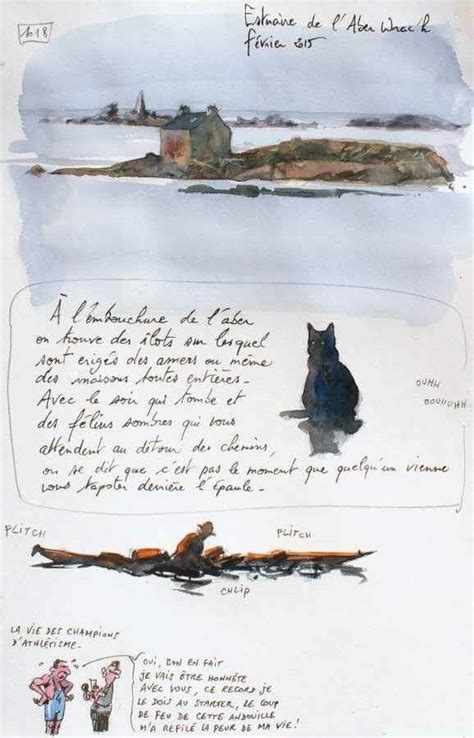 1018
Estuaire de l'Aber Wrac'h
février 2015
À l'embouchure de l'aber
on trouve des îlots sur lesquel
sont erigés des amers ou même
des maisons toutes entières.
Avec le soir qui tombe et
des félins sombres qui vous
attendent au détour des chemins,
on se dit que c'est pas le moment que quelqu'un vienne
vous tapoter derrière l'épaule.
OUHH
OOUUUHH
PLITCH
PLITCH
CHLIP
LA VIE DES CHAMPIONS
D'ATHLÉTISME.
OUI, BON EN FAIT
JE VAIS ÊTRE HONNÊTE
AVEC VOUS, CE RECORD JE
LE DOIS AU STARTER, LE COUP
DE FEU DE CETTE ANDOUILLE
M'A REFILÉ LA PEUR DE MA VIE!